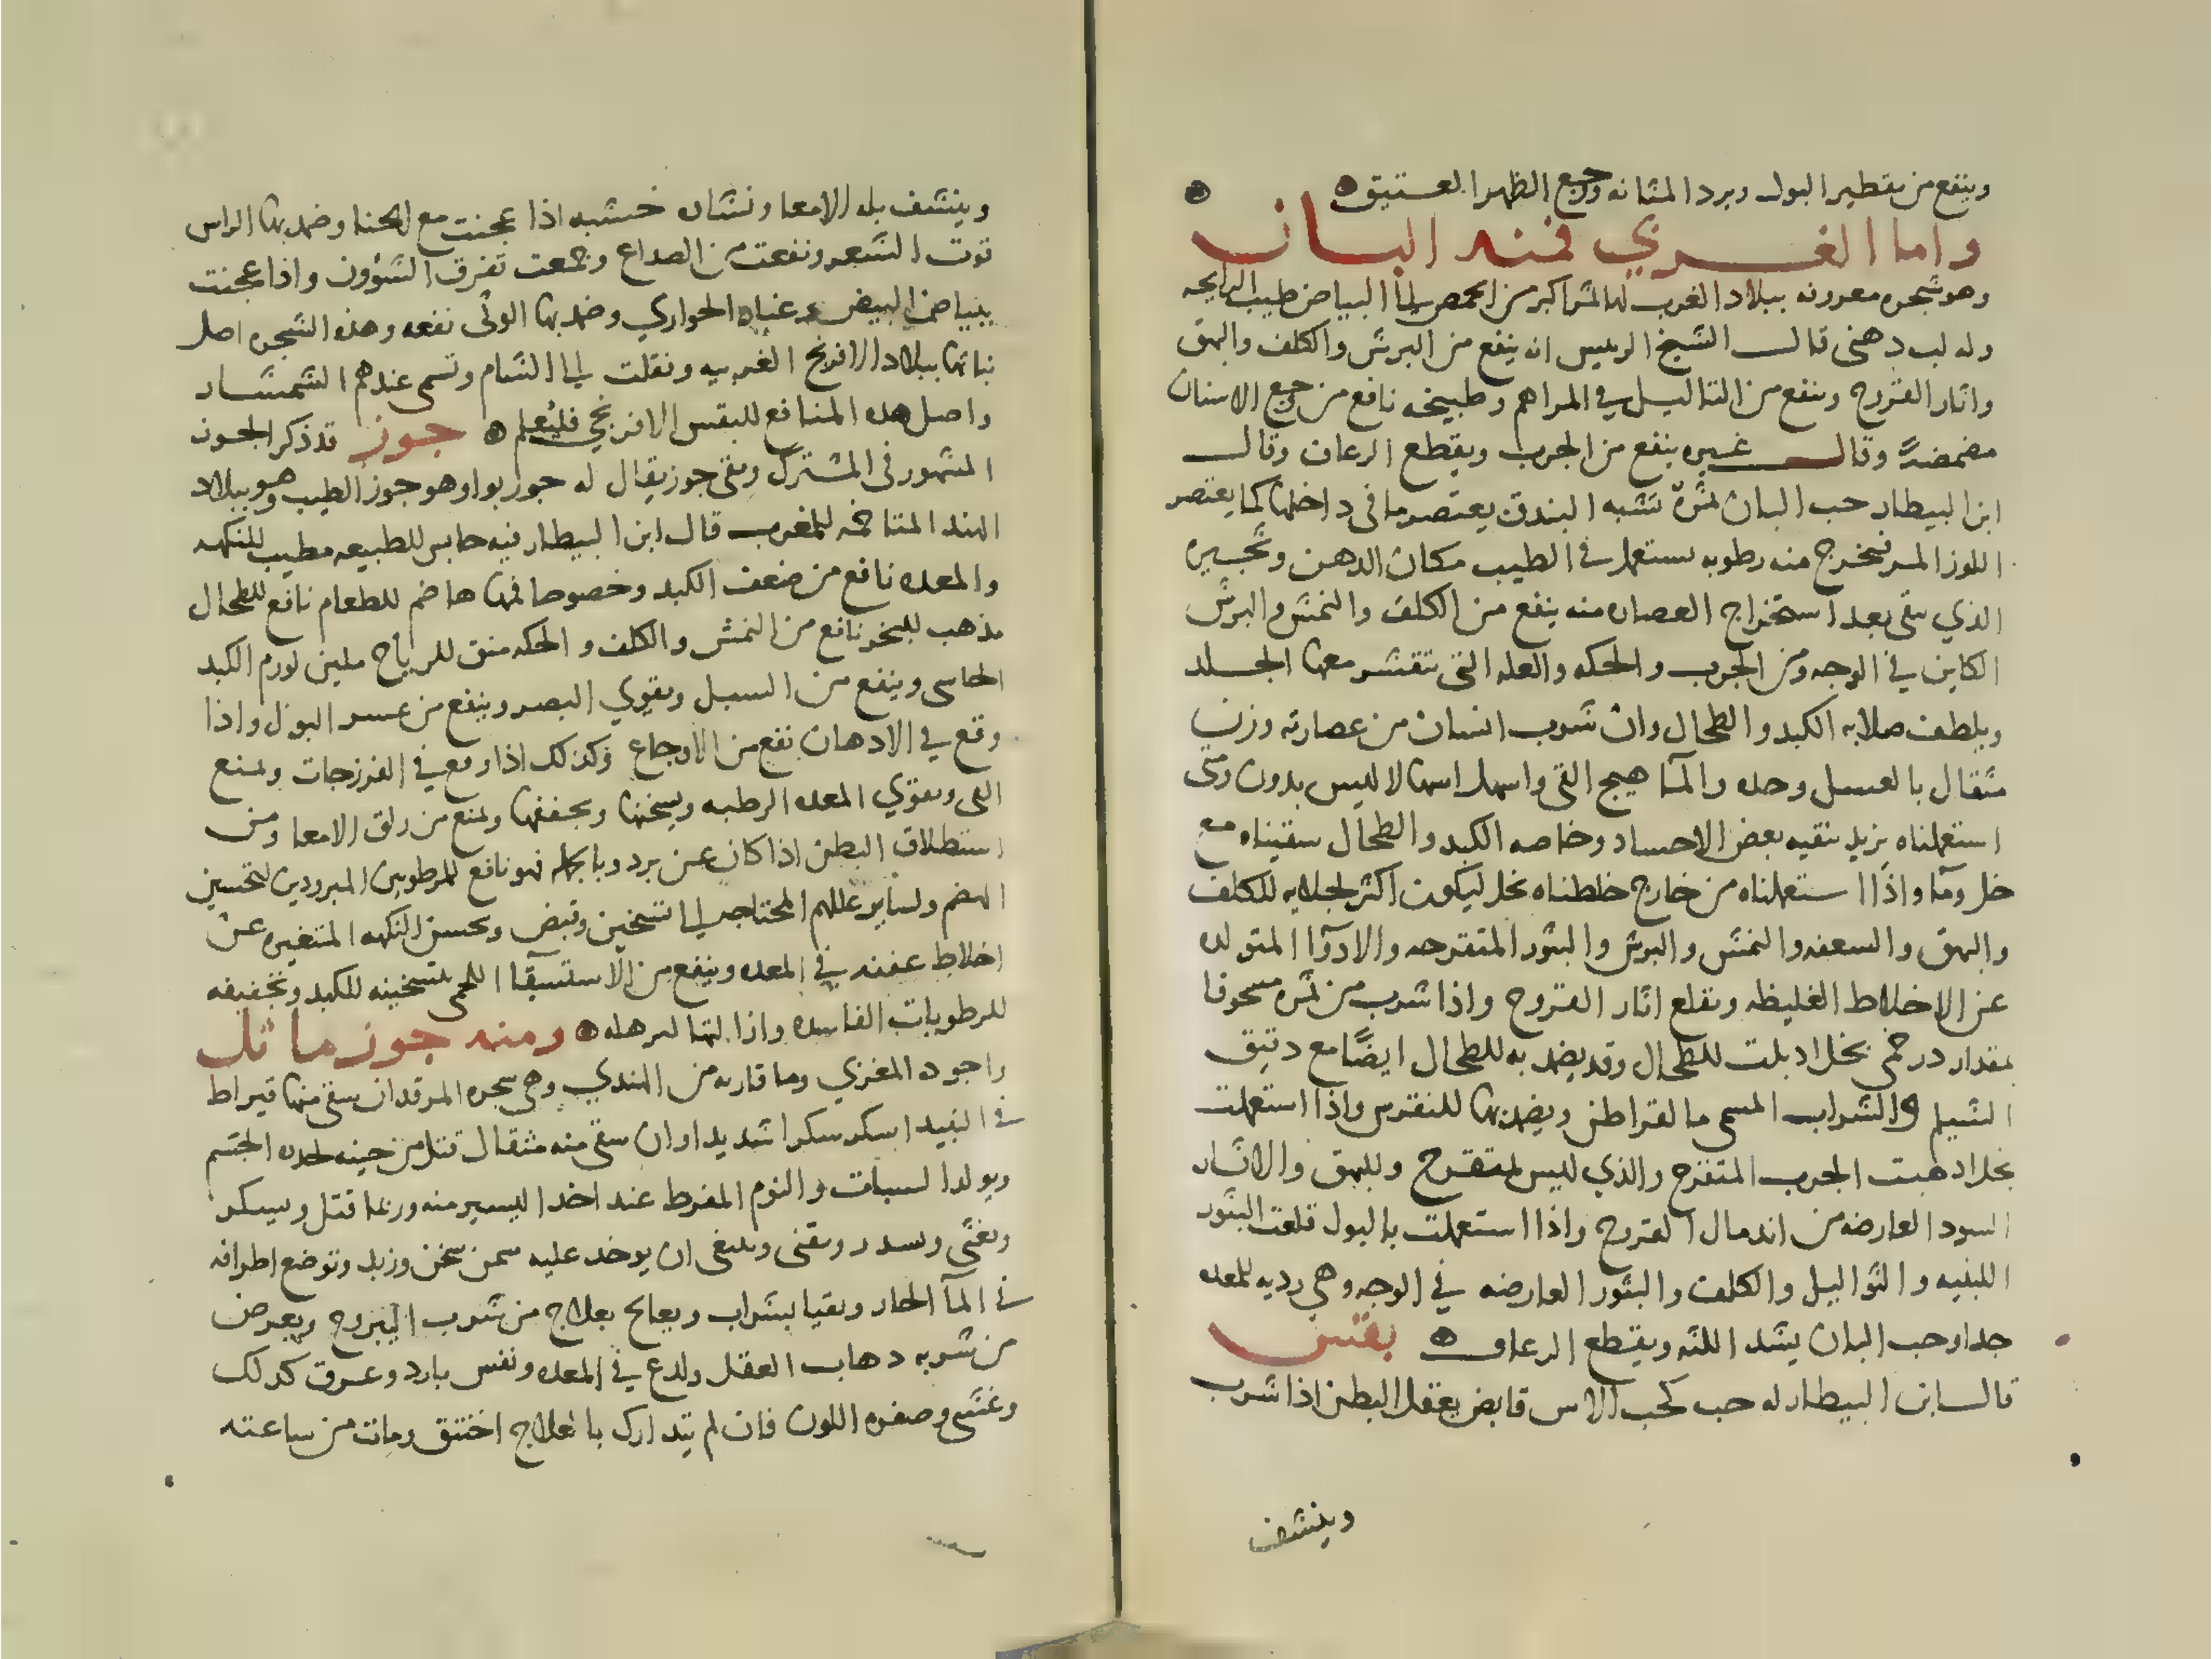 وينفع من تقطير البول وبرد المثانه ووجع الظهر العتيق
واما الغربي فمنه البان
وهو شجره معروفه ببلاد الغرب لها ثمر اكبر من الحمص الى البياض طيب الرايحه
وله لب دهنى قال الشيخ الرييس انه ينفع من البرش والكلف والبهق
واثار القروح وينفع من الثاليل في المراهم وطبيخه نافع من وجع الاسنان
مضمضةً وقال غيره ينفع من الجرب ويقطع الرعاف وقال
ابن البيطار حب البان ثمرة تشبه البندق يعتصر ما فى داخلها كما يعتصر
اللوز المر فيخرج منه رطوبه تستعمل في الطيب مكان الدهن وتجيره
الذي يبقى بعد استخراج العصاره منه ينفع من الكلف والنمش والبرش
الكاين في الوجه ومن الجرب والحكه والعله التى تتقشر معها الجلد
ويلطف صلابه الكبد والطحال وان شرب انسان من عصارته وزن
مثقال بالعسل وحده والمآ هيج القى واسهل اسهالا ليس بدون ومتى
استعملناه نريد تنقيه بعض الاحساد وخاصه الكبد والطحال سقيناه مع
خل ومآ واذا استعملناه من خارج خلطناه بخل ليكون اكثر لجلايه للكلف
والبهق والسعفه والنمش والبرش والبثور المتقرحه والادوآ المتولده
عن الاخلاط الغليظه ويقلع اثار القروح واذا شرب من ثمره مسحوقا
بمقدار درخمى بخل اذبلت للطحال وقد يضمد به للطحال ايضًا مع دقيق
الشيلم والشراب المسمى مالقراطن ويضمد بها للنقرس واذا استعملت
بخل اذهبت الجرب المتقرح والذي ليس بمتقرح وللبهق والاثار
السود العارضه من اندمال القروح واذا استعملت بالبول قلعت البثور
اللبنيه والثواليل والكلف والبثور العارضه في الوجه وهي رديه للمعده
جدا وحب البان يشد اللثه ويقطع الرعاف بقس
قال ابن البيطار له حب كحب الاس قابض يعقل البطن اذا شرب
وينشف
وينشف بله الامعا ونشاره خشبه اذا عجنت مع الحنا وضمد بها الراس
قوت الشعر ونفعت من الصداع وجمعت تفرق الشؤون واذا عجنت
ببياض البيض وغباره الحواري وضمد بها الوثى نفعه وهذه الشجره اصل
نباتها ببلاد الافرنج الغربيه ونقلت الى الشام وتسمى عندهم الشمشار
واصل هذه المنافع للبقس الافرنجي فليُعلم جوز قد ذكر الجوز
المشهور فى المشترك وبقى جوز يقال له جوز بوا وهو جوز الطيب وهو ببلاد
الهند المتاخمه للمغرب قال ابن البيطار فيه حابس للطبيعه مطيب للنكهه
والمعده نافع من ضعف الكبد وخصوصا فمها هاضم للطعام نافع للطحال
مذهب للبخر نافع من النمش والكلف والحكه منق للرياح ملين لورم الكبد
الجاسى وينفع من السبل ويقوي البصر وينفع من عسر البول واذا
وقع في الادهان نفع من الاوجاع وكذلك اذا وقع في الفرزجات ويمنع
القى ويقوي المعده الرطبه ويسخنها ويجففها ويمنع من زلق الامعا ومن
استطلاق البطن اذا كان عن برد وبالجمله فهو نافع للمرطوبين المبرودين لتحسين
الهضم ولساير عللهم المحتاجه الى تسخين وقبض ويحسن النكهه المتغيره عن
اخلاط عفنه في المعده وينفع من الاستسقآ اللحمى بتسخينه للكبد وتجفيفه
للرطوبات الفاسده واذا التها لترهله ومنه جوز ماثل
واجوده المغربي وما قاربه من الهندي وهي شجره المرقد ان سقى منها قيراط
في النبيذ اسكر سكرا شديدا وان سقى منه مثقال قتل من حينه الجسم
ويولد السبات والنوم المفرط عند اخذ اليسير منه وربما قتل ويسكر
ويغثى ويسدر ويقئى وينبغى ان يوخد عليه سمن سخن وزبد وتوضع اطرافه
في المآ الحار ويقيا بشراب ويعالج بعلاج من شرب اليبروح ويعرض
من شربه دهاب العقل ولدع في المعده ونفس بارد وعرق كدلك
وغشى وصفره اللون فان لم يتدارك بالعلاج اختنق ومات من ساعته